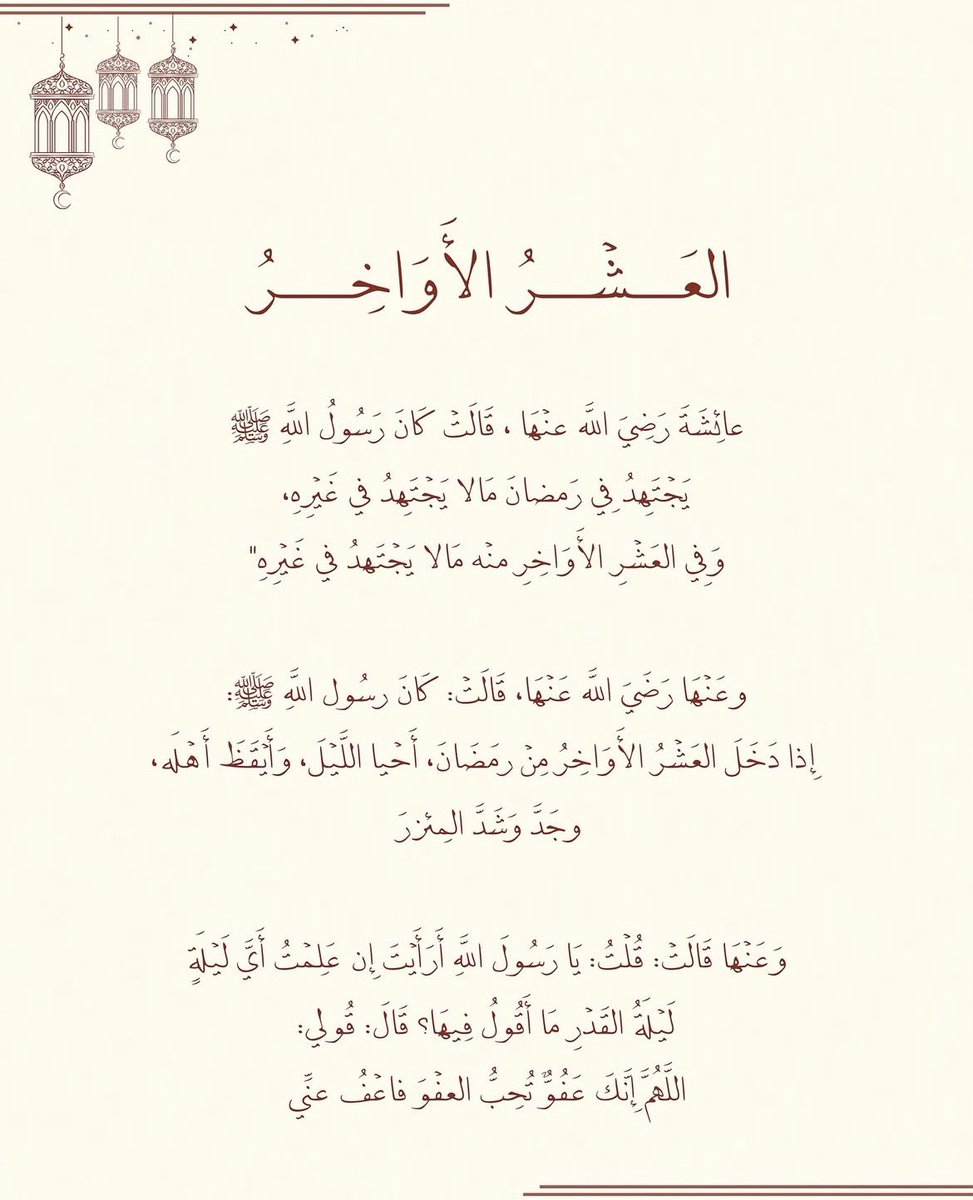 العَـــشْـــرُ الأَوَاخِـــرُ
عائِشَةَ رَضِيَ اللَّه عنْهَا ، قَالَتْ كَانَ رَسُولُ اللَّهِ ﷺ
يَجْتَهِدُ فِي رَمضانَ مَالا يَجْتَهِدُ في غَيْرِهِ،
وَفِي العَشْرِ الأَوَاخِرِ منْه مَالا يَجْتَهدُ في غَيْرِهِ"
وعَنْهَا رَضَيَ اللَّه عَنْهَا، قَالَتْ: كَانَ رسُول اللَّهِ ﷺ:
إِذا دَخَلَ العَشْرُ الأَوَاخِرُ مِنْ رمَضَانَ، أَحْيا اللَّيْلَ، وَأَيْقَظَ أَهْلَه،
وجَدَّ وَشَدَّ المِئزرَ
وَعَنْهَا قَالَتْ: قُلْتُ: يَا رَسُولَ اللَّهِ أَرَأَيْتَ إِن عَلِمْتُ أَيَّ لَيْلَةٍ
لَيْلَةُ القَدْرِ مَا أَقُولُ فِيهَا؟ قَالَ: قُولي:
اللَّهُمَّ إِنَّكَ عَفُوٌّ تُحِبُّ العفْوَ فاعْفُ عنِّي